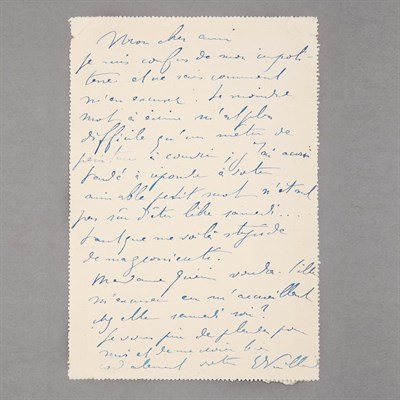 Mon cher ami
je suis confus de mon impoli-
tesse et ne sais comment
m'en excuser. Le moindre
mot à écrire m'est plus
difficile qu'un mètre de
peinture à couvrir, J'ai aussi
tardé à répondre à votre
aimable petit mot n'étant
pas sûr d'être libre samedi...
tant que me voilà stupide
de ma
Madame voudra-t-elle
m'excuser en m'accueillant
chez elle samedi soir?
Je vous prie de plaider pour
moi et de me croire bien
cordialement votre EVuillard